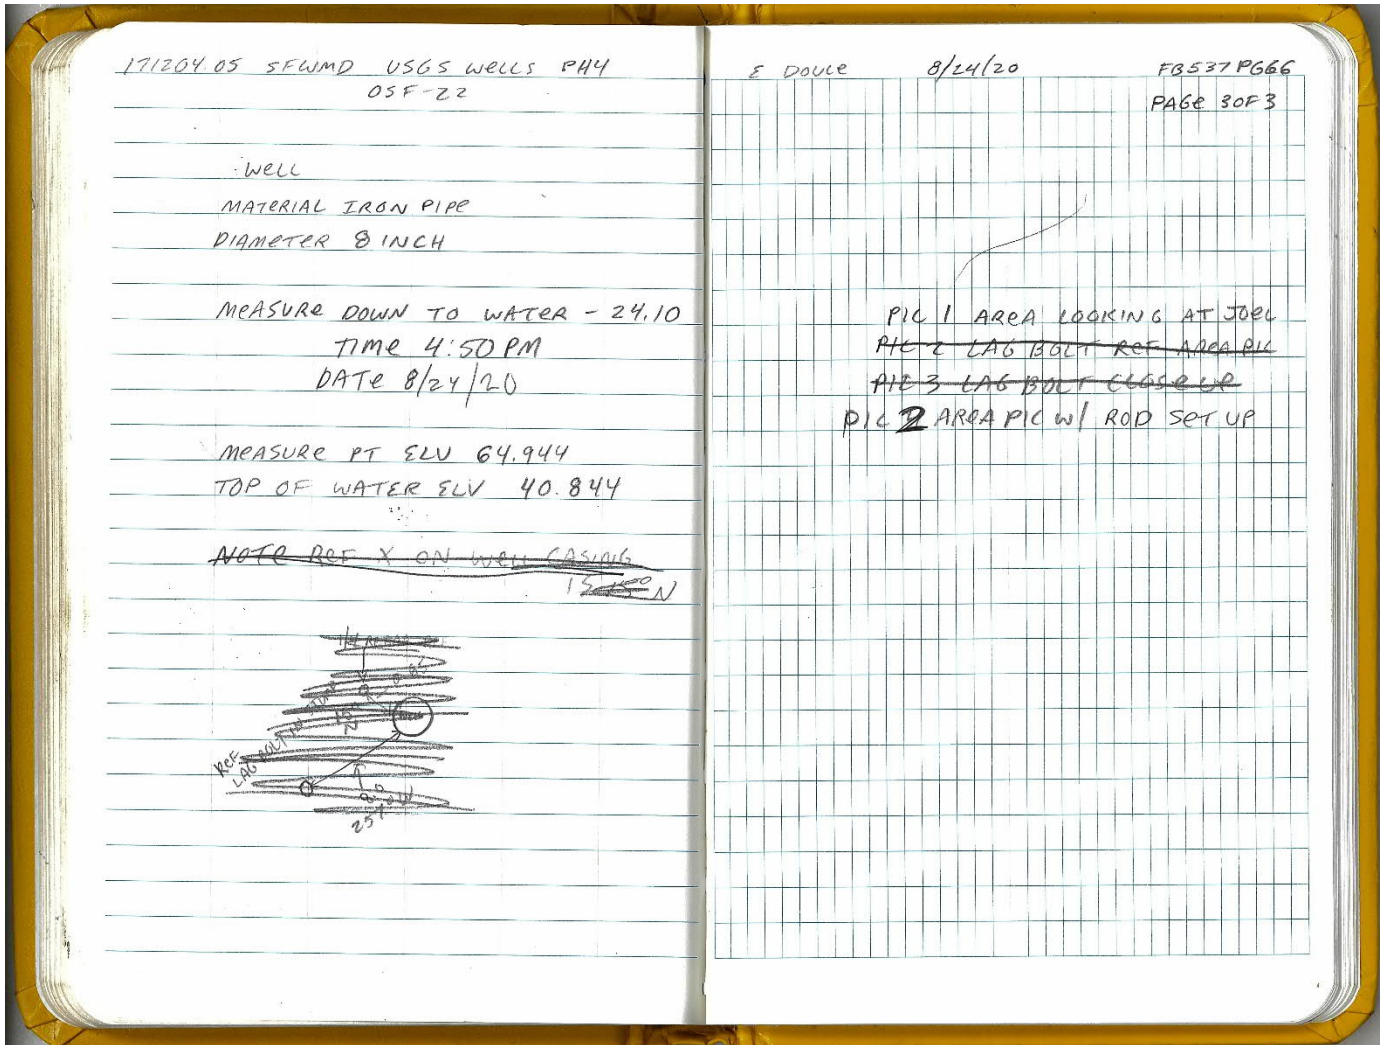 171204.05 SFWMD USGS WELLS PH4
OSF-22
WELL
MATERIAL IRON PIPE
DIAMETER 8 INCH
MEASURE DOWN TO WATER - 24.10
TIME 4:50 PM
DATE 8/24/20
MEASURE PT ELV 64.944
TOP OF WATER ELV 40.844
NOTE REF X ON WELL CASING
15 N
REF
LAG BOLT IN
E DOULE 8/24/20 FB537 PG66
PAGE 3 OF 3
PIC 1 AREA LOOKING AT JOEL
PIC 2 LAG BOLT REF AREA PIC
PIC 3 LAG BOLT CLOSE UP
PIC 2 AREA PIC W/ ROD SET UP